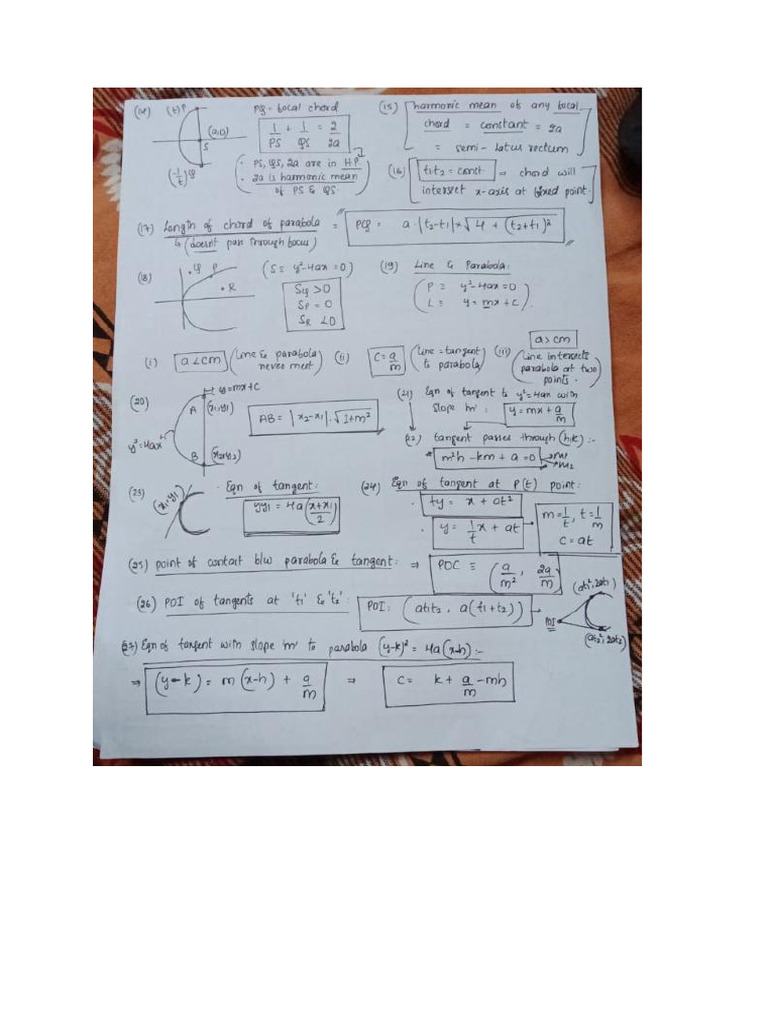 (14) (t) P PQ = focal chord
(a,0)
S
(-1/t) Q
1/PS + 1/QS = 2/2a
· PS, QS, 2a are in H.P
· 2a is harmonic mean
of PS & QS
(15) harmonic mean of any focal
chord = constant = 2a
= semi-latus rectum
(16) t1t2 = const ⇒ chord will
intersect x-axis at fixed point.
(17) Length of chord of parabola = PQ = a·|t2-t1|×√4 + (t2+t1)²
↳ (doesn't pass through focus)
(18) Q P R (S = y²-4ax = 0)
SQ > 0
SP = 0
SR < 0
(19) Line & Parabola:
P ≡ y²-4ax = 0
L ≡ y = mx + c
(i) a < cm (Line & parabola never meet)
(ii) c = a/m (Line = tangent to parabola)
(iii) a > cm
(Line intersects parabola at two points.)
(20) y = mx + c
A (x1,y1)
y² = 4ax
B (x2,y2)
AB = |x2-x1|·√1+m²
(21) Eqn of tangent to y² = 4ax with
slope 'm' : y = mx + a/m
(22) tangent passes through (h,k) :-
m²h - km + a = 0 → m1
→ m2
(23) (x1,y1) · Eqn of tangent:
yy1 = 4a(x+x1/2)
(24) Eqn of tangent at P(t) point:
· ty = x + at²
· y = 1/t x + at
m = 1/t, t = 1/m
c = at
(25) point of contact b/w parabola & tangent: ⇒ POC ≡ (a/m², 2a/m)
(26) POI of tangents at 't1' & 't2': POI: (at1t2, a(t1+t2))
(at1², 2at1)
POI
(at2², 2at2)
(27) Eqn of tangent with slope 'm' to parabola (y-k)² = 4a(x-h) :-
⇒ (y-k) = m(x-h) + a/m ⇒ c = k + a/m - mh